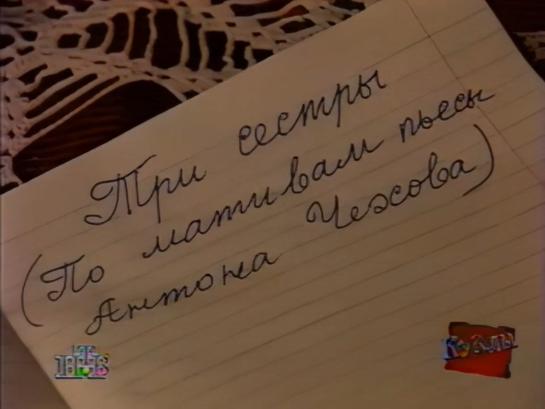 Три сестры
(По мативам пьесы
Антона Чехова)
НТВ
Куклы